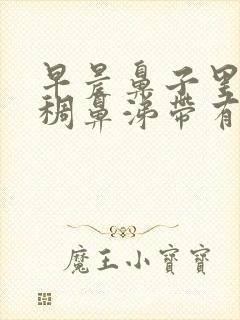 早晨鼻子里
稠鼻涕带有
魔王小寶寶